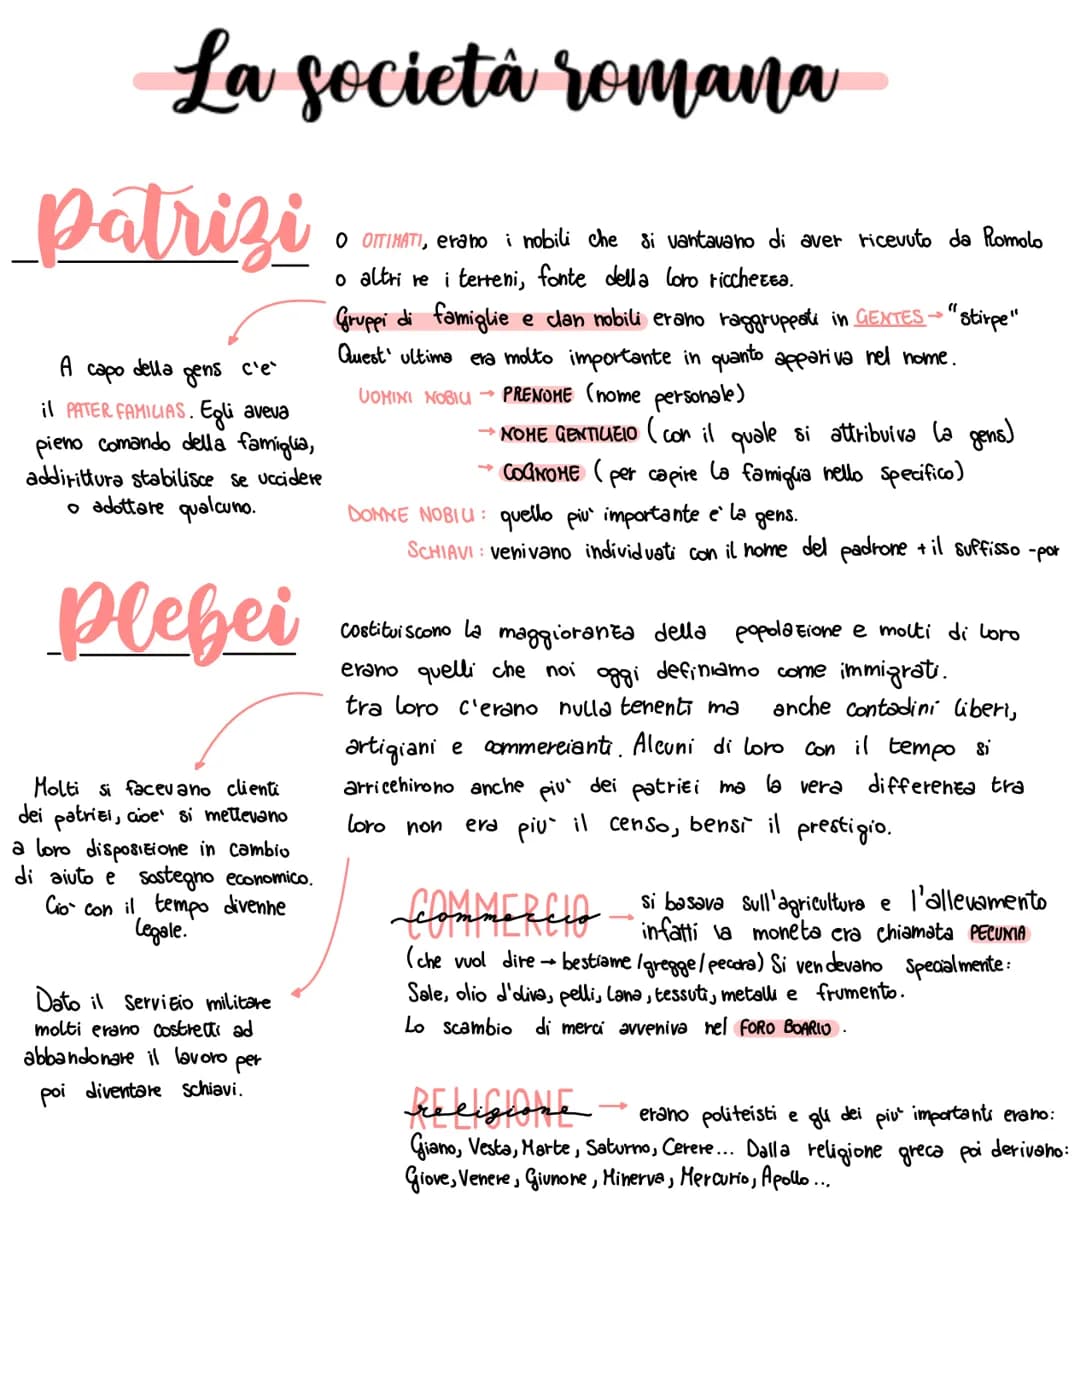 La società romana
Patrizi
O OTTIMATI, erano i nobili che si vantavano di aver ricevuto da Romolo
o altri re i terreni, fonte della loro ricchezza.
Gruppi di famiglie e clan nobili erano raggruppati in GENTES → "stirpe"
Quest' ultima era molto importante in quanto appariva nel nome.
UOMINI NOBILI → PRENOME (nome personale)
→ NOME GENTILIZIO (con il quale si attribuiva la gens)
→ COGNOME (per capire la famiglia nello specifico)
DONNE NOBILI: quello piu' importante e' la gens.
SCHIAVI: venivano individuati con il nome del padrone + il suffisso -por
A capo della gens c'e'
il PATER FAMILIAS. Egli aveva
pieno comando della famiglia,
addirittura stabilisce se uccidere
o adottare qualcuno.
Plebei
costituiscono la maggioranza della popolazione e molti di loro
erano quelli che noi oggi definiamo come immigrati.
tra loro c'erano nulla tenenti ma anche contadini liberi,
artigiani e commercianti. Alcuni di loro con il tempo si
arricchirono anche piu' dei patrizi ma la vera differenza tra
loro non era piu' il censo, bensi' il prestigio.
Molti si facevano clienti
dei patrizi, cioe' si mettevano
a loro disposizione in cambio
di aiuto e sostegno economico.
Cio' con il tempo divenne
legale.
Dato il servizio militare
molti erano costretti ad
abbandonare il lavoro per
poi diventare schiavi.
COMMERCIO
commercio
→ si basava sull'agricoltura e l'allevamento
infatti la moneta era chiamata PECUNIA
(che vuol dire → bestiame/gregge/pecora) Si vendevano specialmente:
Sale, olio d'oliva, pelli, lana, tessuti, metalli e frumento.
Lo scambio di merci avveniva nel FORO BOARIO.
RELIGIONE
religione
→ erano politeisti e gli dei piu' importanti erano:
Giano, Vesta, Marte, Saturno, Cerere... Dalla religione greca poi derivano:
Giove, Venere, Giunone, Minerva, Mercurio, Apollo...